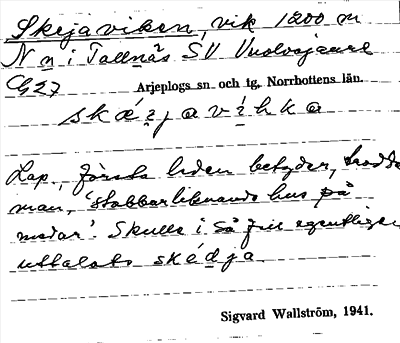 Skejaviken, vik 1200 m
N n i Tallnäs SV Vuolvojaure
CG27 Arjeplogs sn. och tg. Norrbottens län.
skä́i̯avìhka
Lap., första leden betyder, trodde
man, 'stabbarliknande hus på
medar'. Skulle i så fall egentligen
uttalats skédja
Sigvard Wallström, 1941.